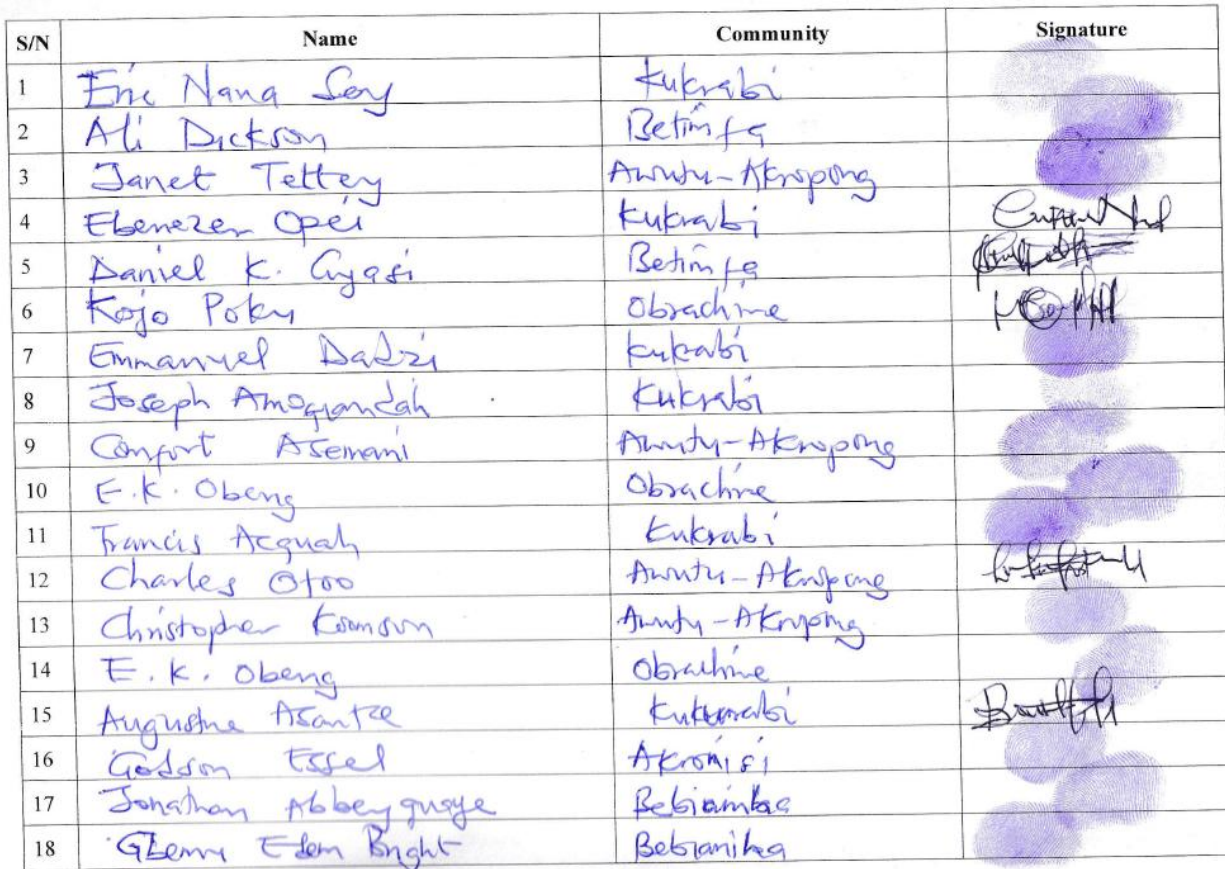 S/N Name Community Signature
1 Eric Nana Sey Kukrabi
2 Ali Dickson Betimfa
3 Janet Tettey Awutu-Akropong
4 Ebenezer Opei Kukrabi
5 Daniel K. Gyasi Betimfa
6 Kojo Poku Obrachire
7 Emmanuel Dadzi Kukrabi
8 Joseph Kukrabi
9 Comfort Asemani Awutu-Akropong
10 E.K. Obeng Obrachire
11 Francis Acquah Kukrabi
12 Charles Otoo Awutu-Akropong
13 Christopher Komson Awutu-Akropong
14 E.K. Obeng Obrachire
15 Augustine Asante
16 Godson Essel Akromisi
17 Jonathan Abbeyquaye
18 Bright